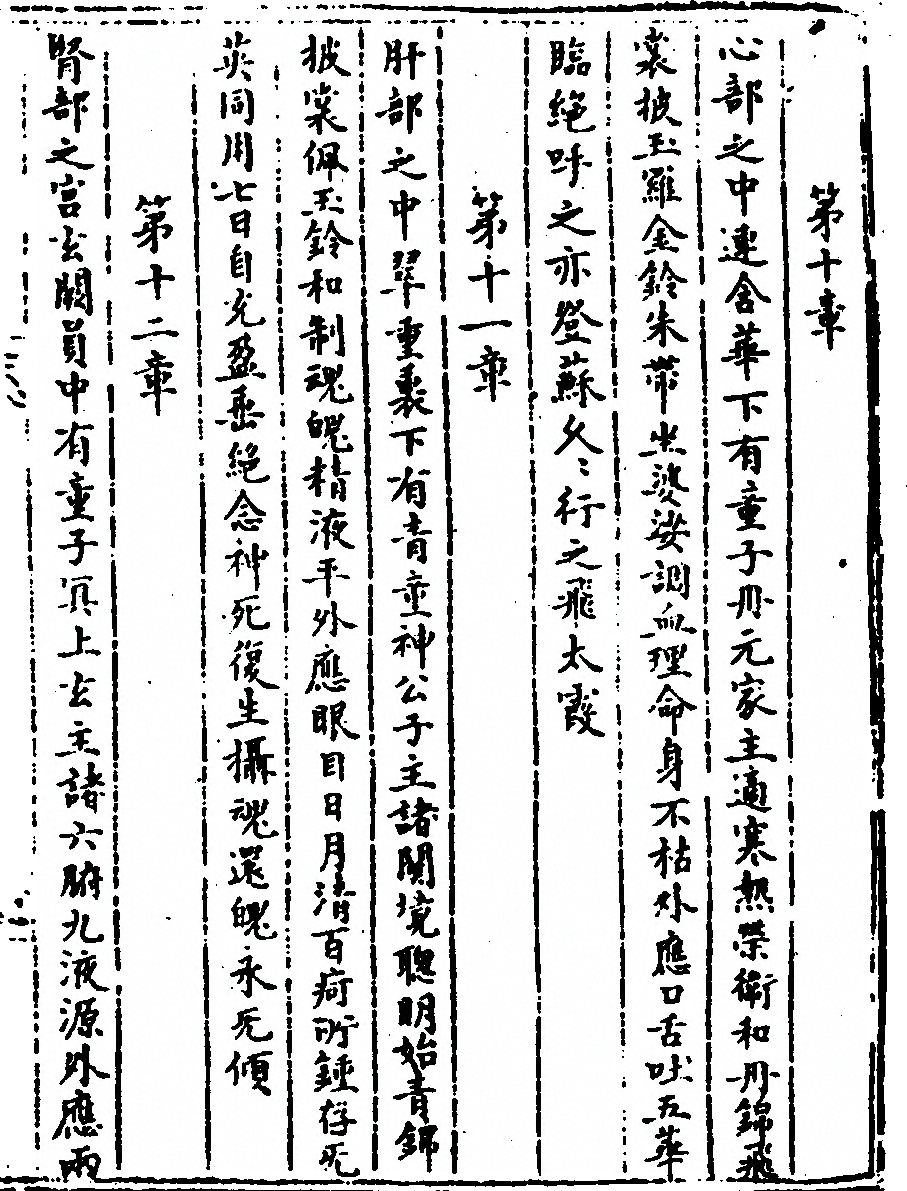 第十章
心部之中連含華下有童子丹元家主適寒熱榮衛和丹錦飛
裳披玉羅金鈴朱帶坐婆娑調血理命身不枯外應口舌吐五華
臨絶呼之亦登蘇久〻行之飛太霞
第十一章
肝部之中翠重裏下有青童神公子主諸關境聰明始青錦
披裳佩玉鈴和制魂魄精液平外應眼目日月清百痾所鍾存无
英同用七日自充盈垂絶念神死復生攝魂還魄永无傾
第十二章
腎部之宮玄闕員中有童子冥上玄主諸六腑九液源外應兩